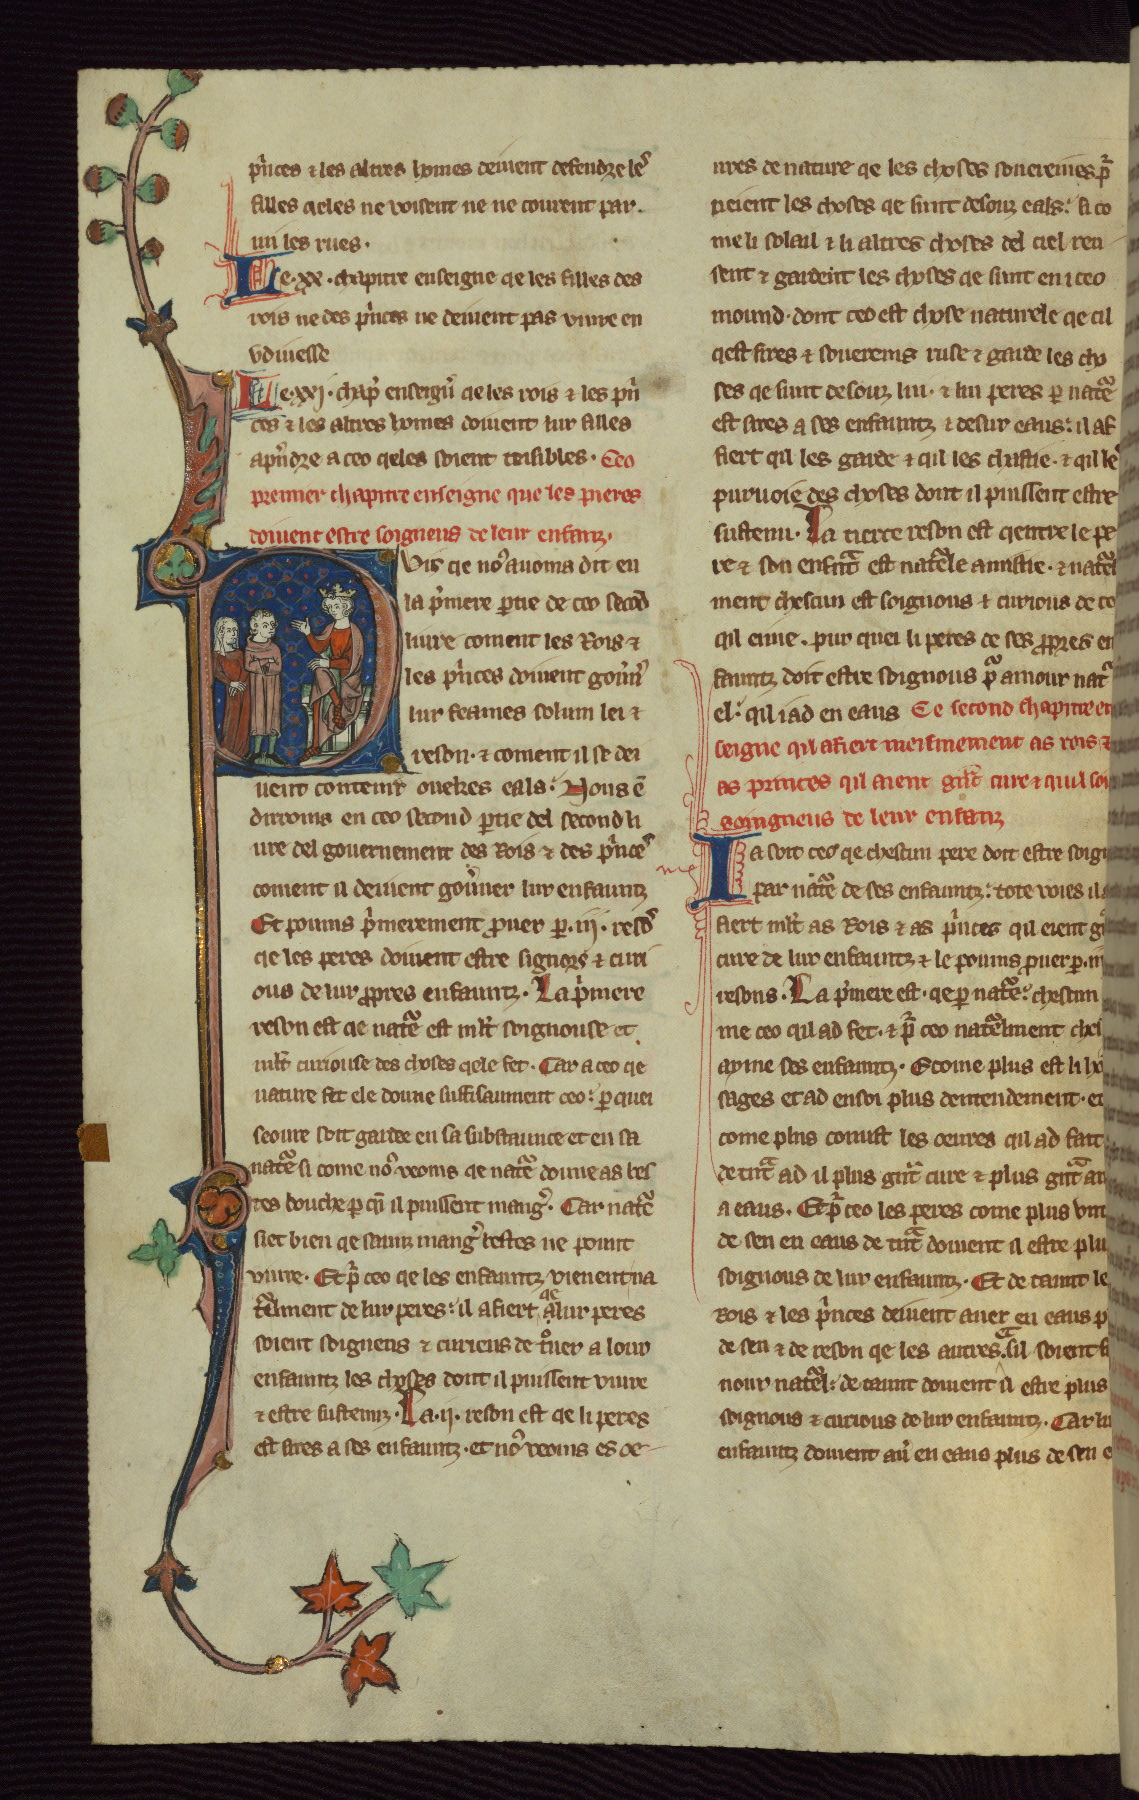 p̃nces ⁊ les altres homes deiuent defendre lẽ
filles qeles ne voisent ne ne courent par
mi les rues.
Le .xx. chapitre enseigne qe les filles des
rois ne des p̃nces ne deiuent pas viure en
vdiuesse
Le .xxj. chap̃ enseign̄ qe les rois ⁊ les p̃n
ces ⁊ les altres homes doiuent lur filles
ap̃ndre a ceo qeles soient teisibles. Ceo
premier chapitre enseigne que les pieres
doiuent estre soigneus de leur enfanz.
Puis qe noꝰ auoms dit en
la p̃mere ꝑtie de ceo secõd
liure coment les Rois ⁊
les p̃nces doiuent goũn̄
lur feames solum lei ⁊
reson. ⁊ coment il se dei
uent contenir oueskes eals: Nous ẽ
dirroms en ceo second ꝑtie del second li
ure del gouernement des Rois ⁊ des p̃nceˢ
coment il deiuent goũner lur enfauntz
Et poums p̃merement ꝓuer ꝑ .iij. resõs
qe les peres doiuent estre signors ⁊ curi
ous de lur ꝓpres enfauntz. La p̃mere
reson est qe natẽ est mlt̃ soignouse et
mlt̃ curiouse des choses qele fet. Car a ceo qe
nature fet ele doune suffisaument ceo: ꝑ quei
seoure soit garde en sa substaunce et en sa
natẽ si come noꝰ veoms qe natẽ doune as bes
tes bouche ꝑ qi il puissent mang̃. Car natẽ
siet bien qe sanz mang̃ bestes ne point
viure. Et p̃ ceo qe les enfauntz vienent na
tẽlment de lur peres: il afiert qe lur peres
soient soigneus ⁊ curieus de tᵒuer a lour
enfauntz les choses dont il puissent viure
⁊ estre sustenuz. La .ij. reson est qe li peres
est sires a ses enfauntz. et noꝰ veoms es oe
ures de nature qe les choses souereines p̃
ueient les choses qe sunt desouz eals: si co
me li solail ⁊ li altres choses del ciel reu
sent ⁊ gardeint les choses qe sunt en iceo
mound. dont ceo est chose naturele qe cil
qest sires ⁊ souereins ruse ⁊ garde les cho
ses qe sunt desouz lui. ⁊ lui peres ꝑ natẽ
est sires a ses enfauntz ⁊ desur eaus: il af
fiert qil les garde ⁊ qil les chastie. ⁊ qil lẽ
puruoie des choses dont il puissent estre
sustenu. La tierce reson est qentre le pe
re ⁊ son enfnt̃ est natẽle amistie. ⁊ natẽl
ment chescun est soignous ⁊ curious de ce
qil eime. pur quei li peres de ses ꝓpres en
fauntz doit estre soignous p̃ amour nat̃
el: qil i ad en eaus Ce second chapitre en
seigne qil afiert meismement as rois ⁊
as princes qil aient gñt cure ⁊ quil soi
soingneus de leur enfanz
Ia soit ceo qe chescun pere doit estre soign
par natẽ de ses enfauntz: tote voies il a
fiert mlt̃ as Rois ⁊ as p̃nces qil eient g̃
cure de lur enfauntz ⁊ le poums ꝓuer ꝑ .iij
resons. La p̃mere est. qe ꝑ natẽ: chescun
me ceo qil ad fet. ⁊ p̃ ceo natẽlment ches
ayme ses enfauntz. Et come plus est li hõ
sages et ad en soi plus dentendement. et
come plus conust les oeures qil ad fait
de tñt ad il plus gñt cure ⁊ plus gñt an
a eaus. Et p̃ ceo les peres come plus vnt
de sen en eaus de tñt doiuent il estre plu
soignous de lur enfauntz. Et de taunt le
Rois ⁊ les p̃nces deiuent auer en eaus p
de sen ⁊ de reson qe les autres. sil soient
nour natẽl: de taunt doiuent il estre plus
soignous ⁊ curious de lur enfauntz. Car lu
enfauntz doiuent aũ en eaus plus de sen e